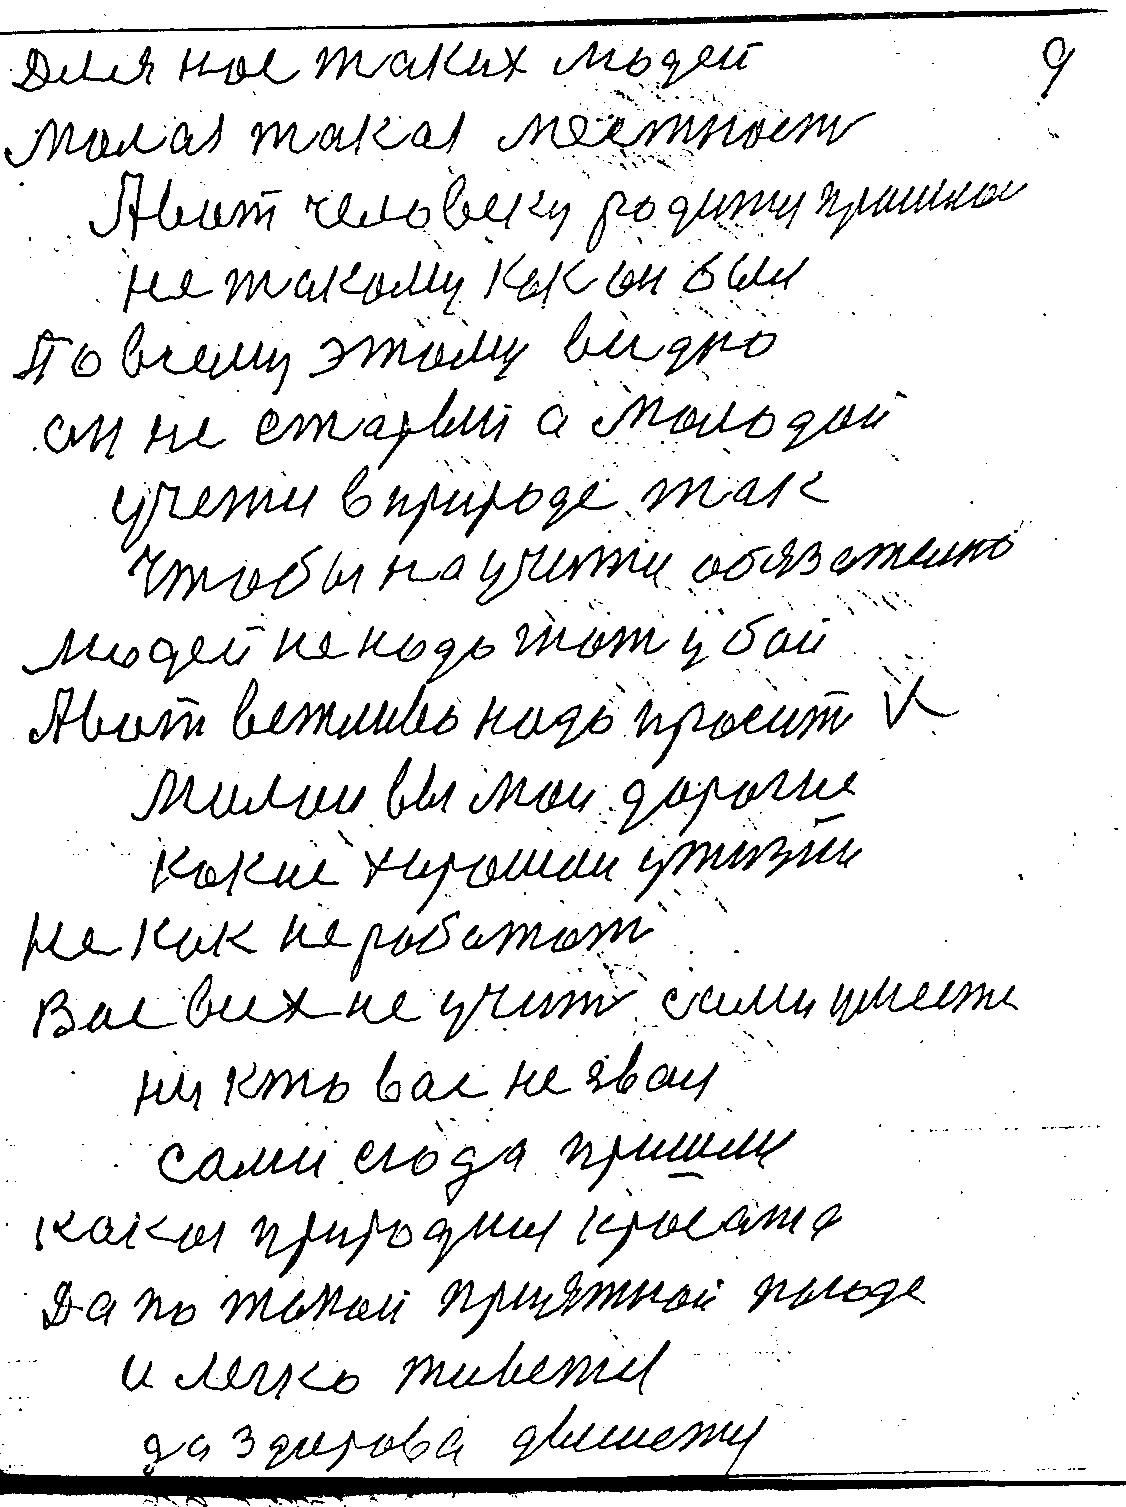 Для нас таких людей 9
Малая такая местност
Авот человеку родити пришлос
не такому как он был
По всему этому видно
он не старый а молодой
учети в природе так
Чтобы научити обязателно
Людей не надо тот убой
Авот вежливо надо просит
Милаи вы мои дорогие
какие хорошаи
Не как не работат
Вас всех не учит сами умеете
ни кто вас не звал
сами сюда пришли
какая природния красата
Да по такой приятной погоде
и легко живети
да здорова движети